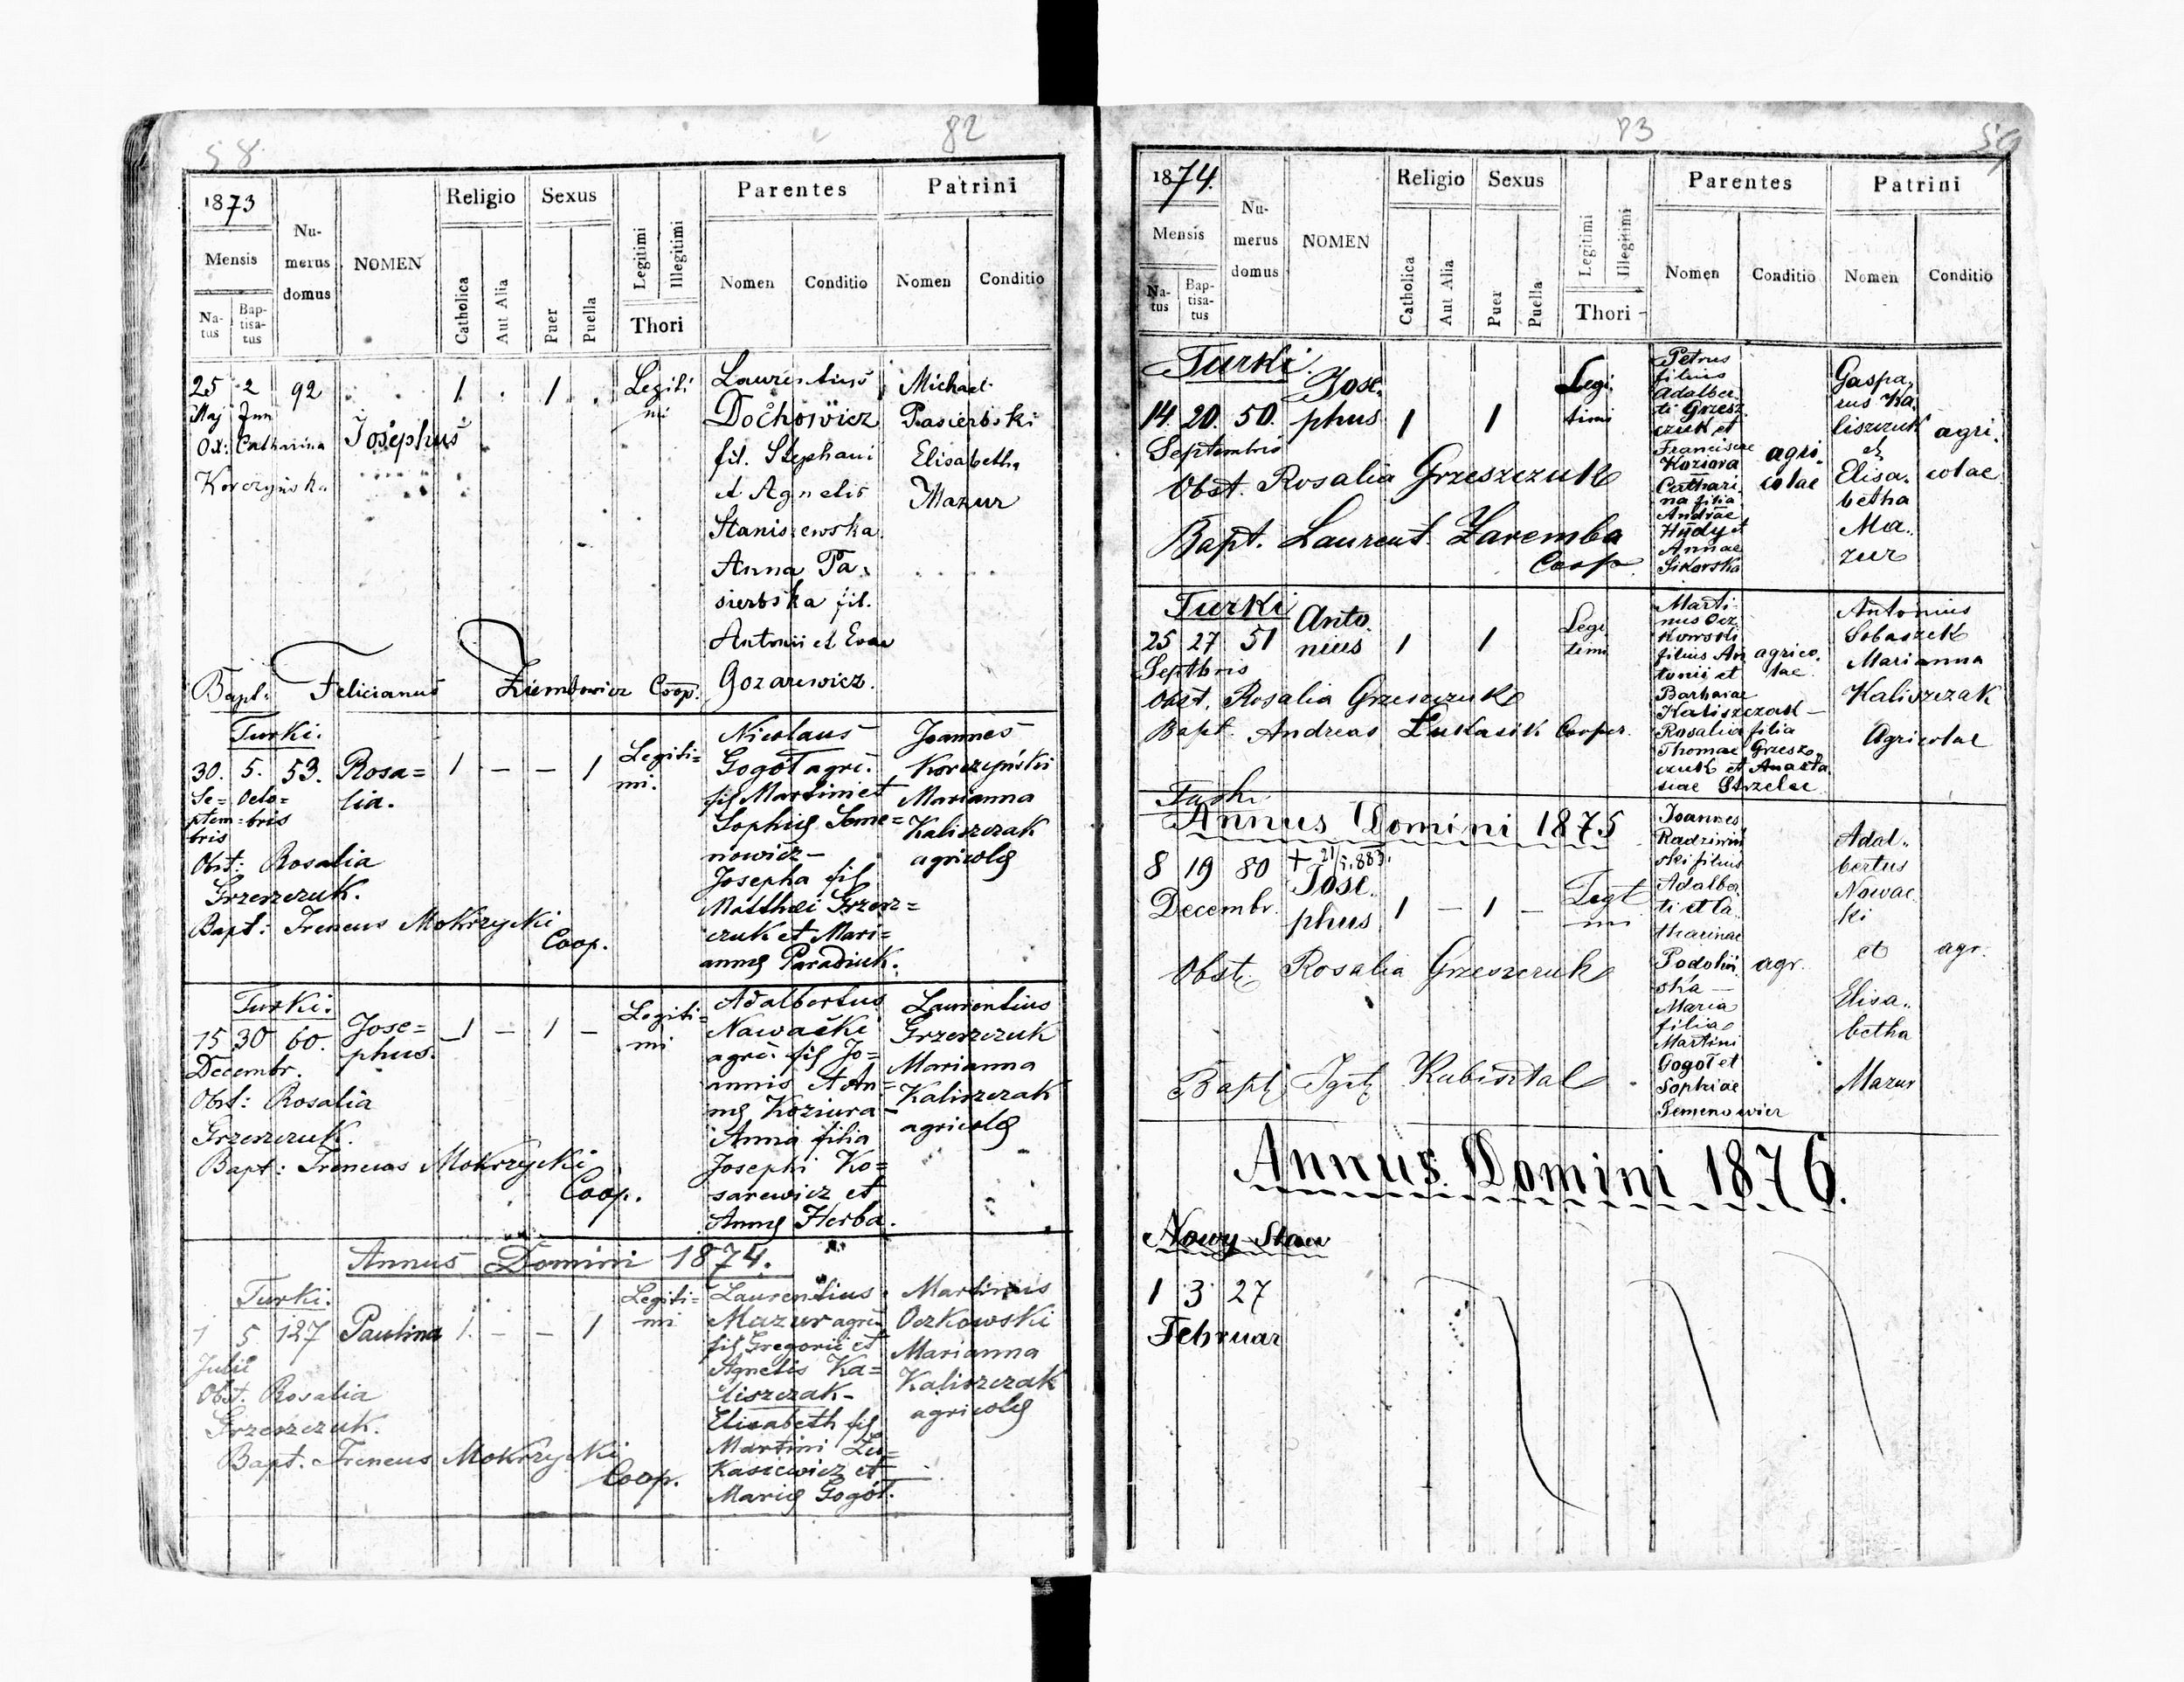 58
82
1873
Mensis
Na-
tus
Bap-
tisa-
tus
Nu-
merus
domus
NOMEN
Religio
Catholica
Aut Alia
Sexus
Puer
Puella
Legitimi
Illegitimi
Thori
Parentes
Nomen
Conditio
Patrini
Nomen
Conditio
25 2 92
Maj Jun
Ox: Catharina
Korczyńska
Josephus
1 . 1 .
Legiti
mi
Laurentius
Dochowicz
fil. Stephani
et Agnelis
Staniszewska
Anna Pa.
sierbska fil.
Antonii et Evae
Gozarewicz.
Michael
Pasierbski
Elisabetha
Mazur
Bapt: Felicianus Ziembowicz Coop.
Turki.
30. 5. 53. Rosa=
lia.
Se= Octo=
ptem= bris
bris
Obst: Rosalia
Grzeszczuk.
Bapt: Ireneus Mokrzycki
Coop.
1 – – 1
Legiti=
mi.
Nicolaus
Gogół agri.
fil Martini et
Sophię Seme=
nowicz –
Josepha fil
Matthæi Grzesz=
czuk et Mari=
annę Paradiuk.
Joannes
Korczyński
Marianna
Kaliszczak
agricolę
Turki.
15 30 60. Jose=
phus.
Decembr.
Obst: Rosalia
Grzeszczuk.
Bapt: Ireneus Mokrzycki
Coop.
1 – 1 –
Legiti=
mi
Adalbertus
Nawački
agri. fil Jo=
annis et An=
nę Koziura –
Anna filia
Josephi Ko=
sarewicz et
Annę Herba.
Laurentius
Grzeszczuk
Marianna
Kaliszczak
agricolę
Annus Domini 1874.
Turki.
1 5 127 Paulina
Julii
Obst. Rosalia
Grzeszczuk.
Bapt. Ireneus Mokrzycki
Coop.
1. – – 1
Legiti=
mi
Laurentius
Mazur agri
fil Gregorii et
Agnetis Ka=
liszczak –
Elisabeth fil
Martini Łu=
kasiewicz et
Marię Gogół.
Martinus
Oczkowski
Marianna
Kaliszczak
agricolę
83
59
1874.
Mensis
Na-
tus
Bap-
tisa-
tus
Nu-
merus
domus
NOMEN
Religio
Catholica
Aut Alia
Sexus
Puer
Puella
Legitimi
Illegitimi
Thori
Parentes
Nomen
Conditio
Patrini
Nomen
Conditio
Turki.
14. 20. 50. Jose.
phus
Septembris
1 1
Legi.
timi
Obst. Rosalia Grzeszczuk
Bapt. Laurent. Zaremba
Coop.
Petrus
filius
Adalber
ti Grzesz
czuk et
Franciscae
Koziora
Cathari.
na filia
Andrae
Hudy et
Annae
Sikorska
agri.
colae
Gaspa.
rus Ka.
liszczuk
et
Elisa.
betha
Ma.
zur
agri.
colae
Turki
25 27 51 Anto.
nius
Septbris
1 1
Legi
timi
Obst. Rosalia Grzeszczuk
Bapt. Andreas Łukasik Cooper.
Marti-
nus Ocz
kowski
filius An
tonii et
Barbarae
Kaliszczak –
Rosalia filia
Thomae Grzesz.
czuk et Anasta
siae Strzelec
agrico.
lae
Antonius
Sobaszek
Marianna
Kaliszczak
Agricolae
Turki
Annus Domini 1875
8 19 80 + 21/5.883.
Jose.
phus
Decembr.
1 – 1 –
Legt
mi
Obst. Rosalia Grzeszczuk
Bapt. Ign. Kubisztal
Joannes
Radziwin
ski filius
Adalber
ti et Ca
tharinae
Podoliń
ska –
Maria
filia
Martini
Gogoł et
Sophiae
Semenowicz
agr.
Adal..
bertus
Nowac
ki
et
Elisa..
betha
Mazur
agr.
Annus Domini 1876.
Nowy Staw
1 3 27
Februar